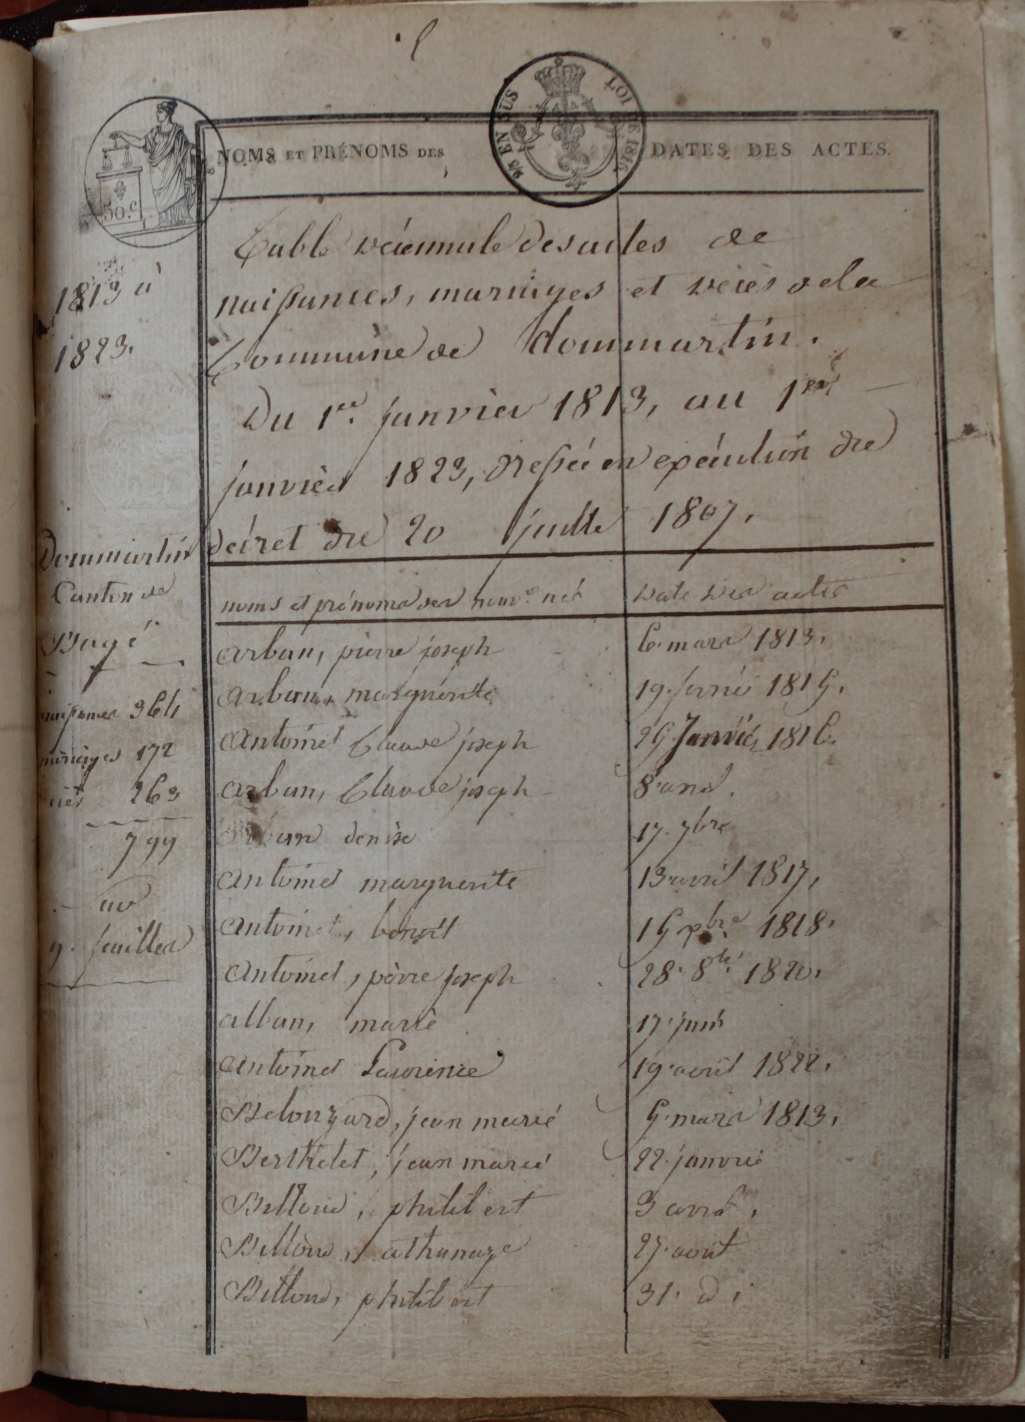 NOMS ET PRÉNOMS DES
DATES DES ACTES.
EN SUS
LOI DE 1816
50.c
1813 à
1823.
Table décennale des actes de
naissances, mariages et décès de la
Commune de dommartin.
Du 1er janvier 1813, au 1er
janvier 1823, dressée en exécution du
décret du 20 juillet 1807.
Dommartin
Canton de
Bagé
naissances 364
mariages 172
décès 263
799
9. feuilles
noms et prénoms des nouv. nés
date des actes
arban, pierre joseph
6. mars 1813.
arban, marguerite
19. janvié 1815.
antoinet Claude joseph
25 Janvié 1816.
arban, Claude joseph
8 and.
arban denise
17. 7bre
antoinet marguerite
13 avril 1817.
antoinet, benoit
15 xbre 1818.
antoinet, pierre joseph
28. 8bre 1820.
alban, marie
17. juin
antoinet Laurence
19 avril 1822.
Belouzard, jean marie
5. mars 1813.
Berthelet, jean marie
22. janvié
Billoud, philibert
3 avril.
Billoud, athanaze
27. août
Billoud, philibert
31. d.